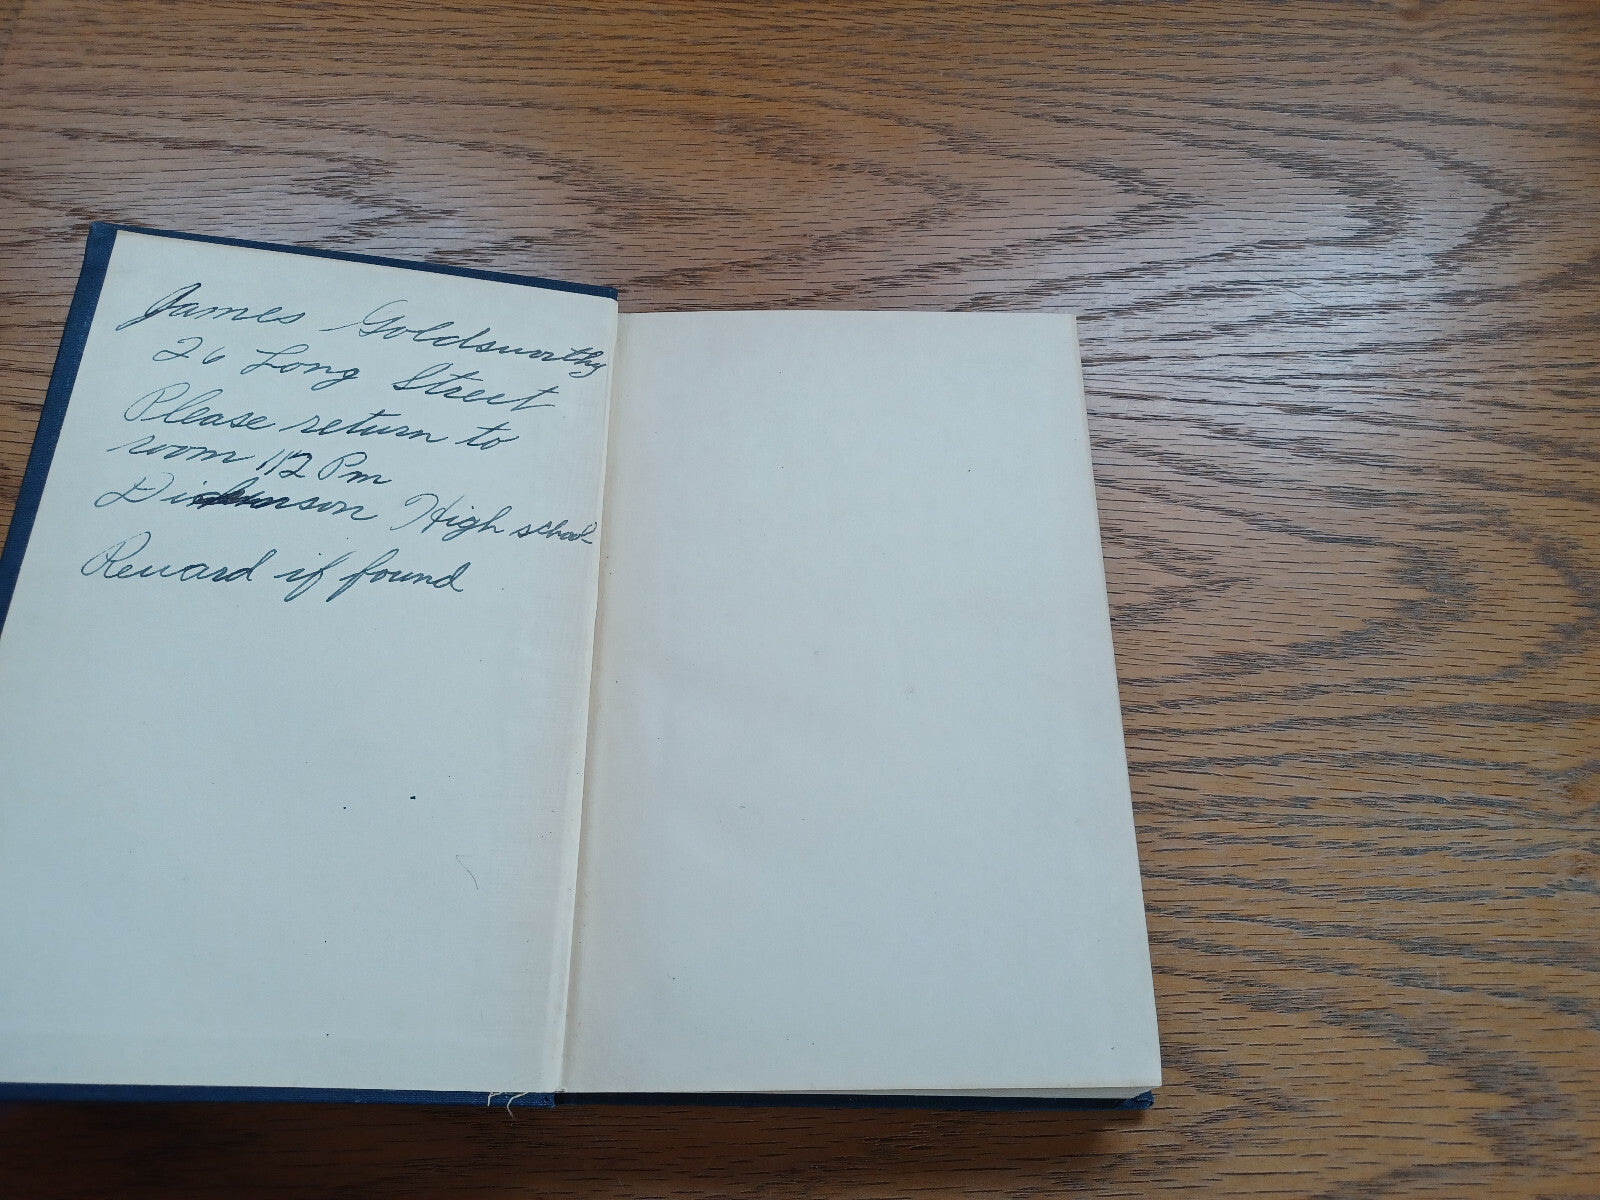 James Goldsworthy
26 Long Street
Please return to
room 112 Pm
Dickinson High school
Reward if found